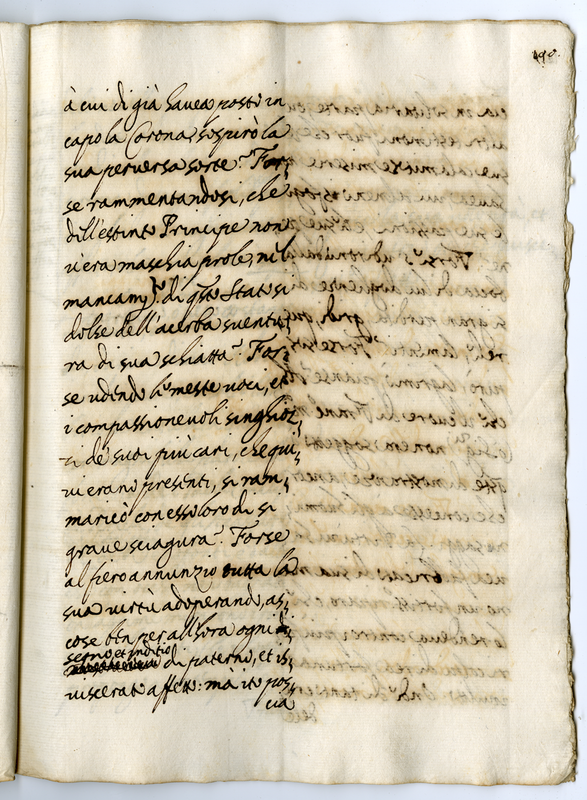 190.
à cui di già havea posto in
capo la Corona, sospirò la
sua perversa sorte? For=
se rammentandosi, che
dell'estinto Principe non
v'era maschia prole, nel
mancamto. di qsto Stato si
dolse dell'acerba sventu=
ra di sua schiatta? For=
se udendo le meste voci, et
i compassionevoli singhioz=
ti de suoi più cari, che qui=
vi erano presenti, si ram=
maricò con esso loro di si
grave sciagura? Forse
al fiero annunzio tutta la
sua virtù adoperando, as=
cose ben per allora ogni
segno, et inditio
di paterno, et is=
viscerato affetto: ma ito pos=
cia